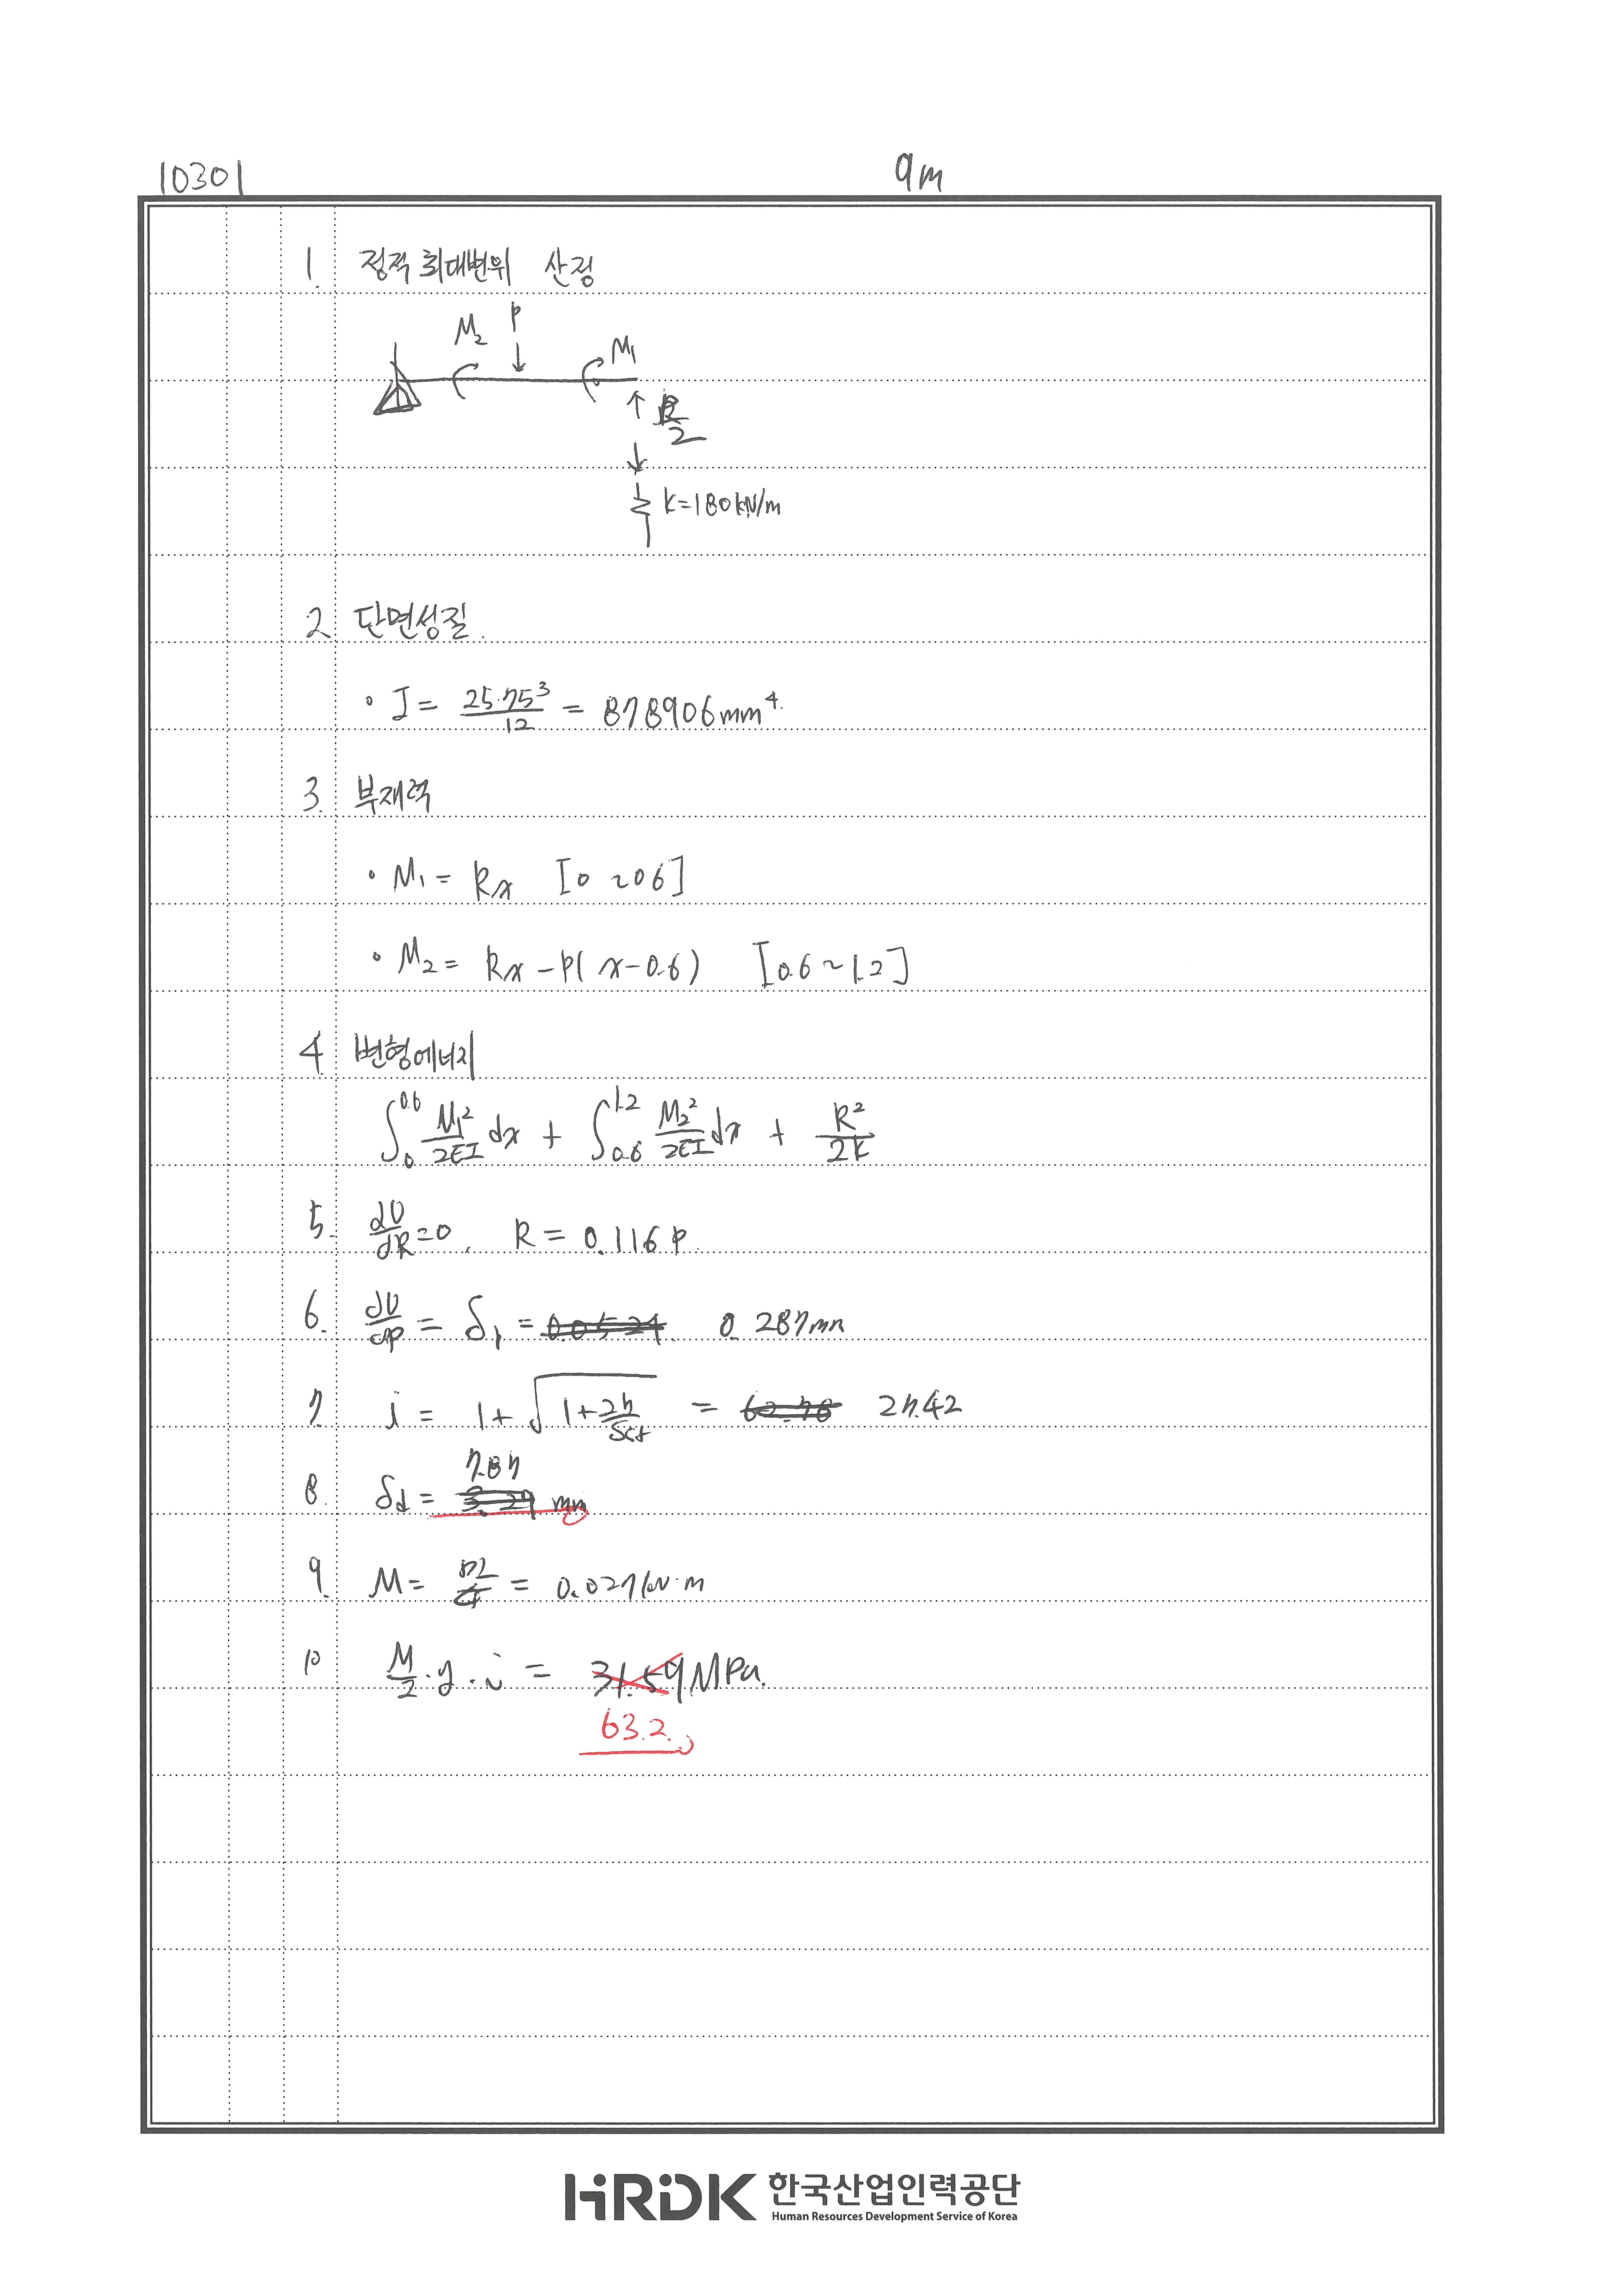 10301
9m
1. 정적 최대변위 산정
M₂ P M₁
R/2
K=180kN/m
2. 단면성질.
• I = 25·75³/12 = 878906mm⁴.
3. 부재력
• M₁ = Rx [0 ~ 0.6]
• M₂ = Rx - P(x-0.6) [0.6 ~ 1.2]
4. 변형에너지
∫₀^0.6 M₁²/2EI dx + ∫0.6^1.2 M₂²/2EI dx + R²/2K
5. dU/dR = 0, R = 0.116P.
6. dU/dP = δ₁ = 0.0524. 0.287mm
7. i = 1+√(1+2h/δst) = 62.78 27.42
8. δd = 3.29 7.87 mm
9. M = PL/4 = 0.027kN·m
10 M/2·y·i = 31.59MPa.
63.2
HRDK 한국산업인력공단
Human Resources Development Service of Korea